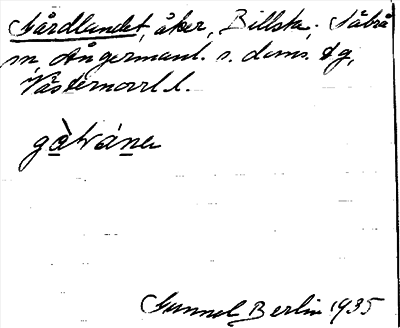 Gårdlandet, åker, Billsta, Säbrå
sn, Ångermanl. s. doms. tg,
Västernorrl. l.
Gunnel Berlin 1935